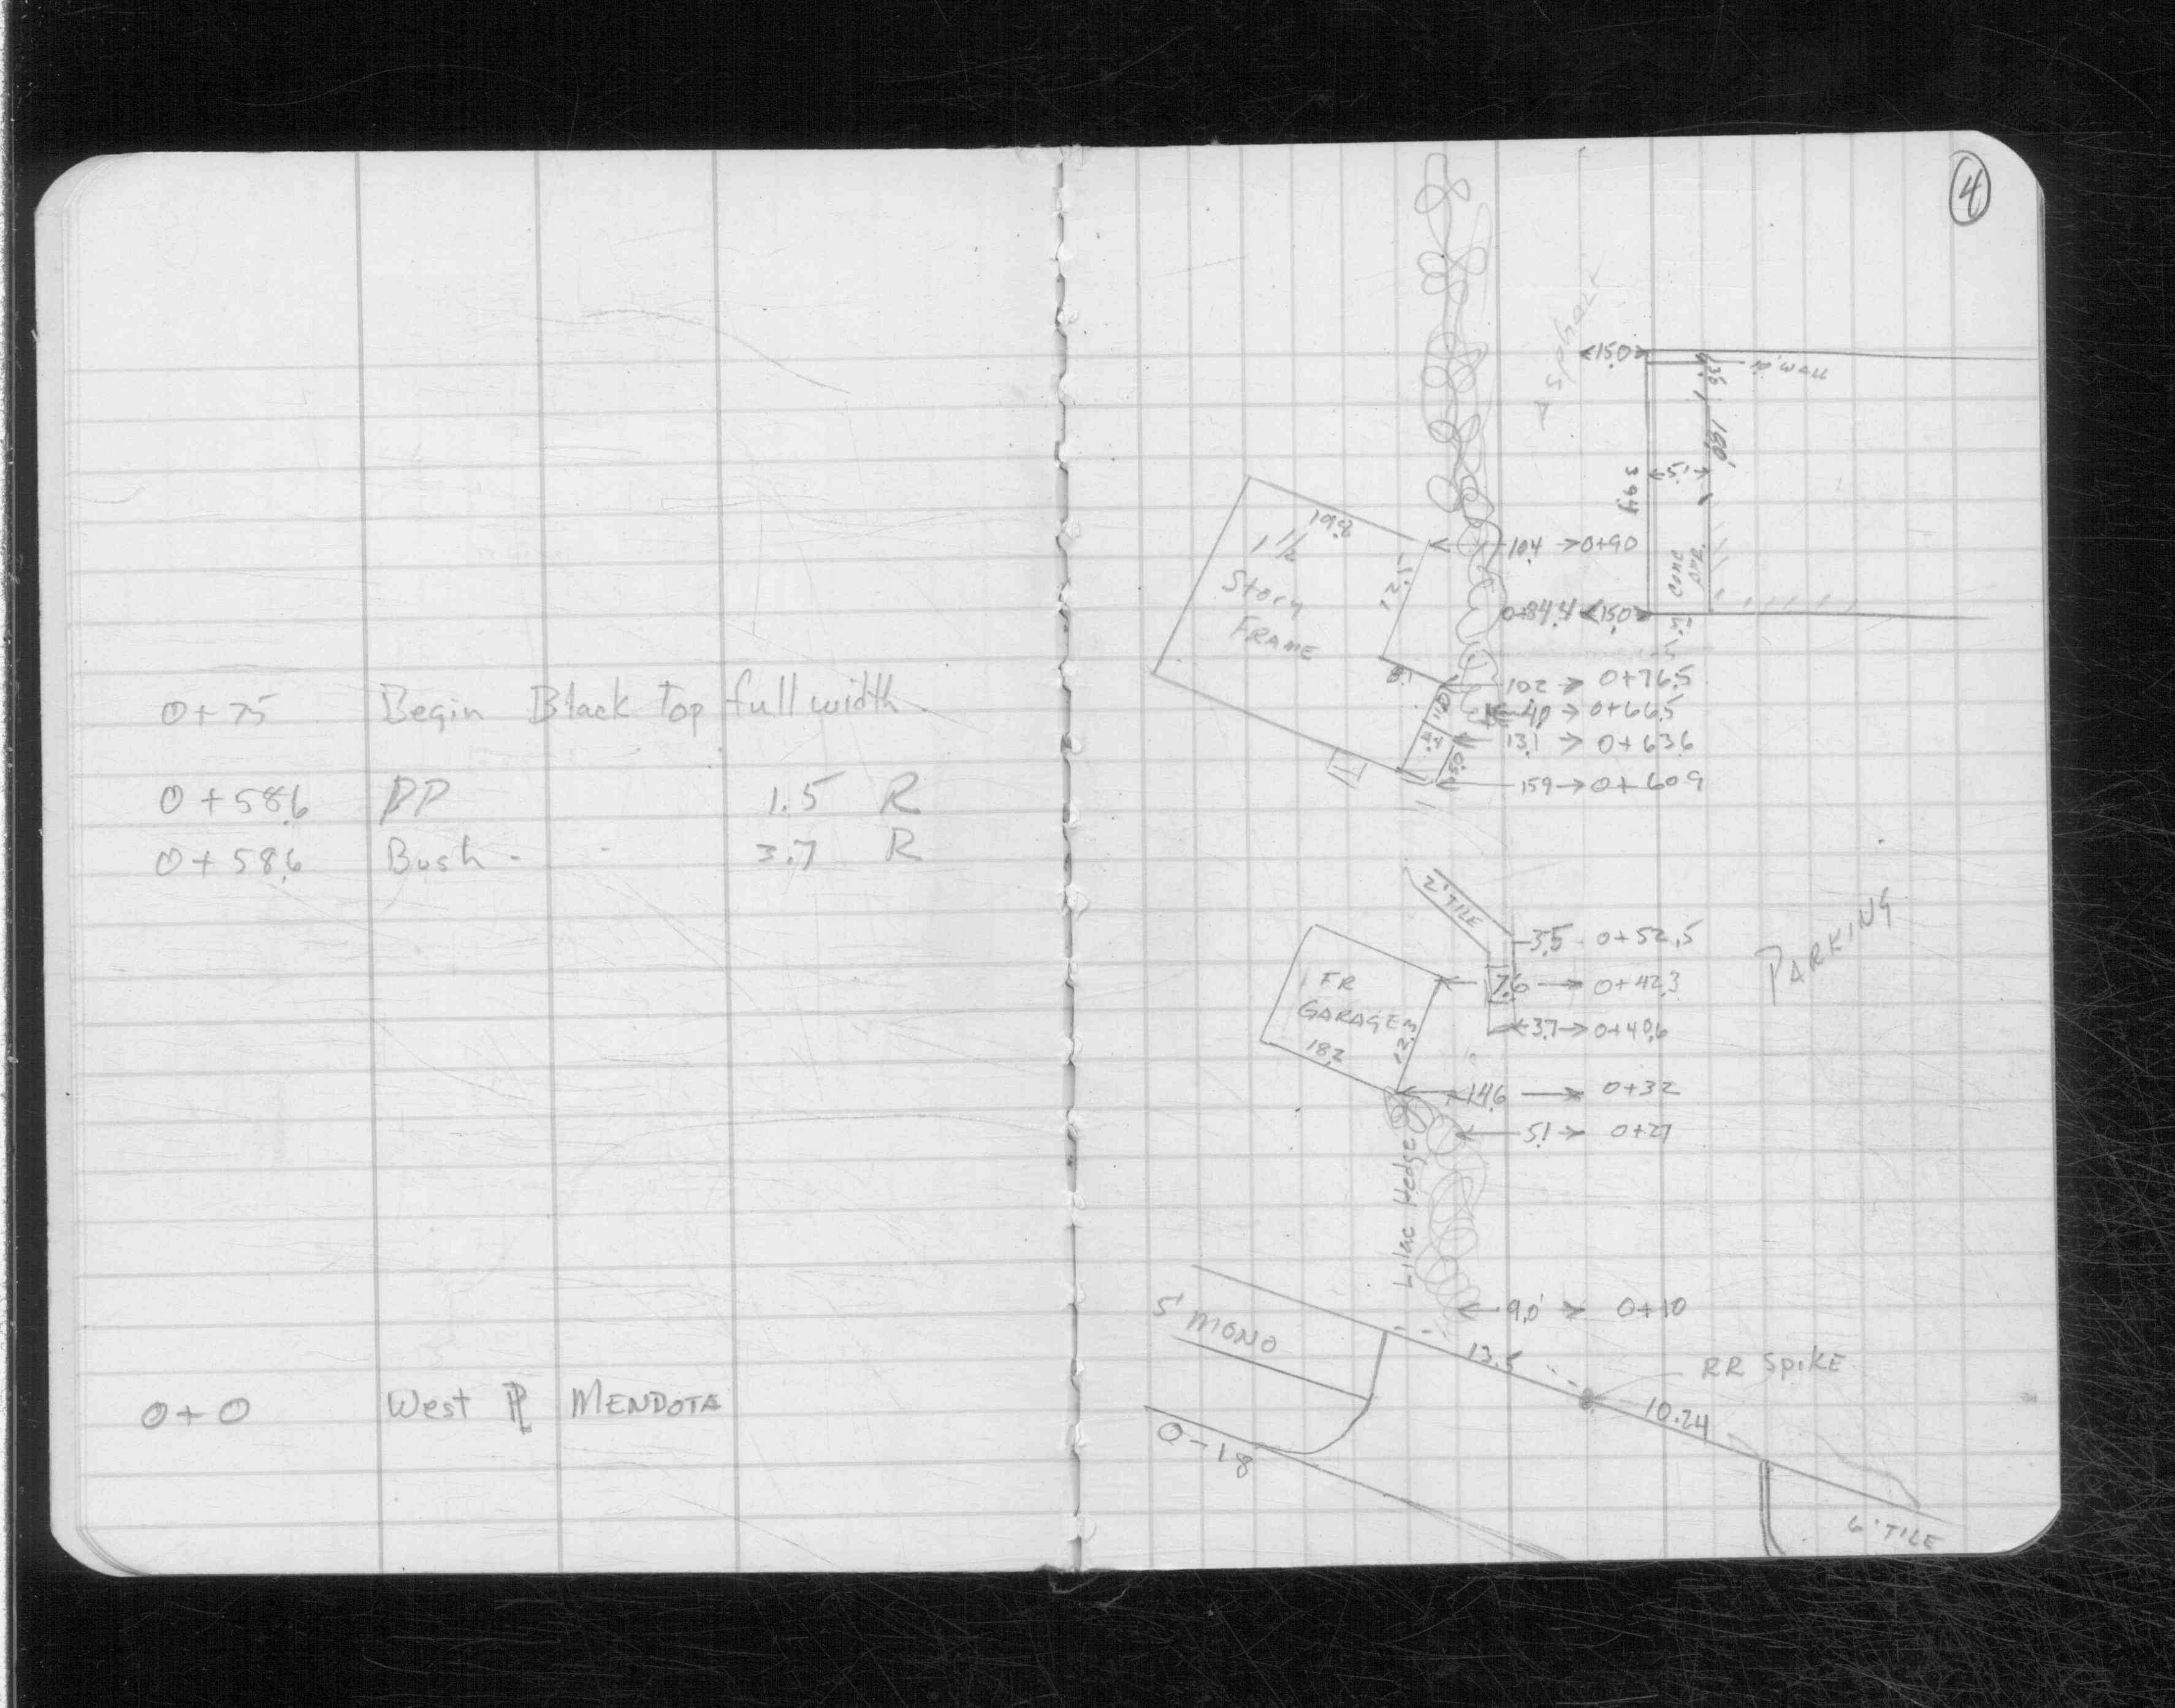 0+75 Begin Black top full width.
0+58.6 PP 1.5 R
0+58.6 Bush - - 3.7 R
0+0 West PL MENDOTA
4
Asphalt
<15.0>
10" WALL
19.8
1 1/2
Story
FRAME
12.5
10.4 → 0+90
39.4
5.1
CONC
0+84.4 <15.0>
8.1
10.2 → 0+76.5
11.0
4.0 → 0+66.5
4.4
13.1 → 0+63.6
5.0
15.9 → 0+60.9
2' TILE
3.5 - 0+52.5
PARKING
1 FR
GARAGE
18.2
12.3
7.6 → 0+42.3
3.7 → 0+40.6
14.6 → 0+32
5.1 → 0+27
Lilac Hedge
9.0 → 0+10
5' MONO
13.5
RR SPIKE
10.24
0-18
6' TILE